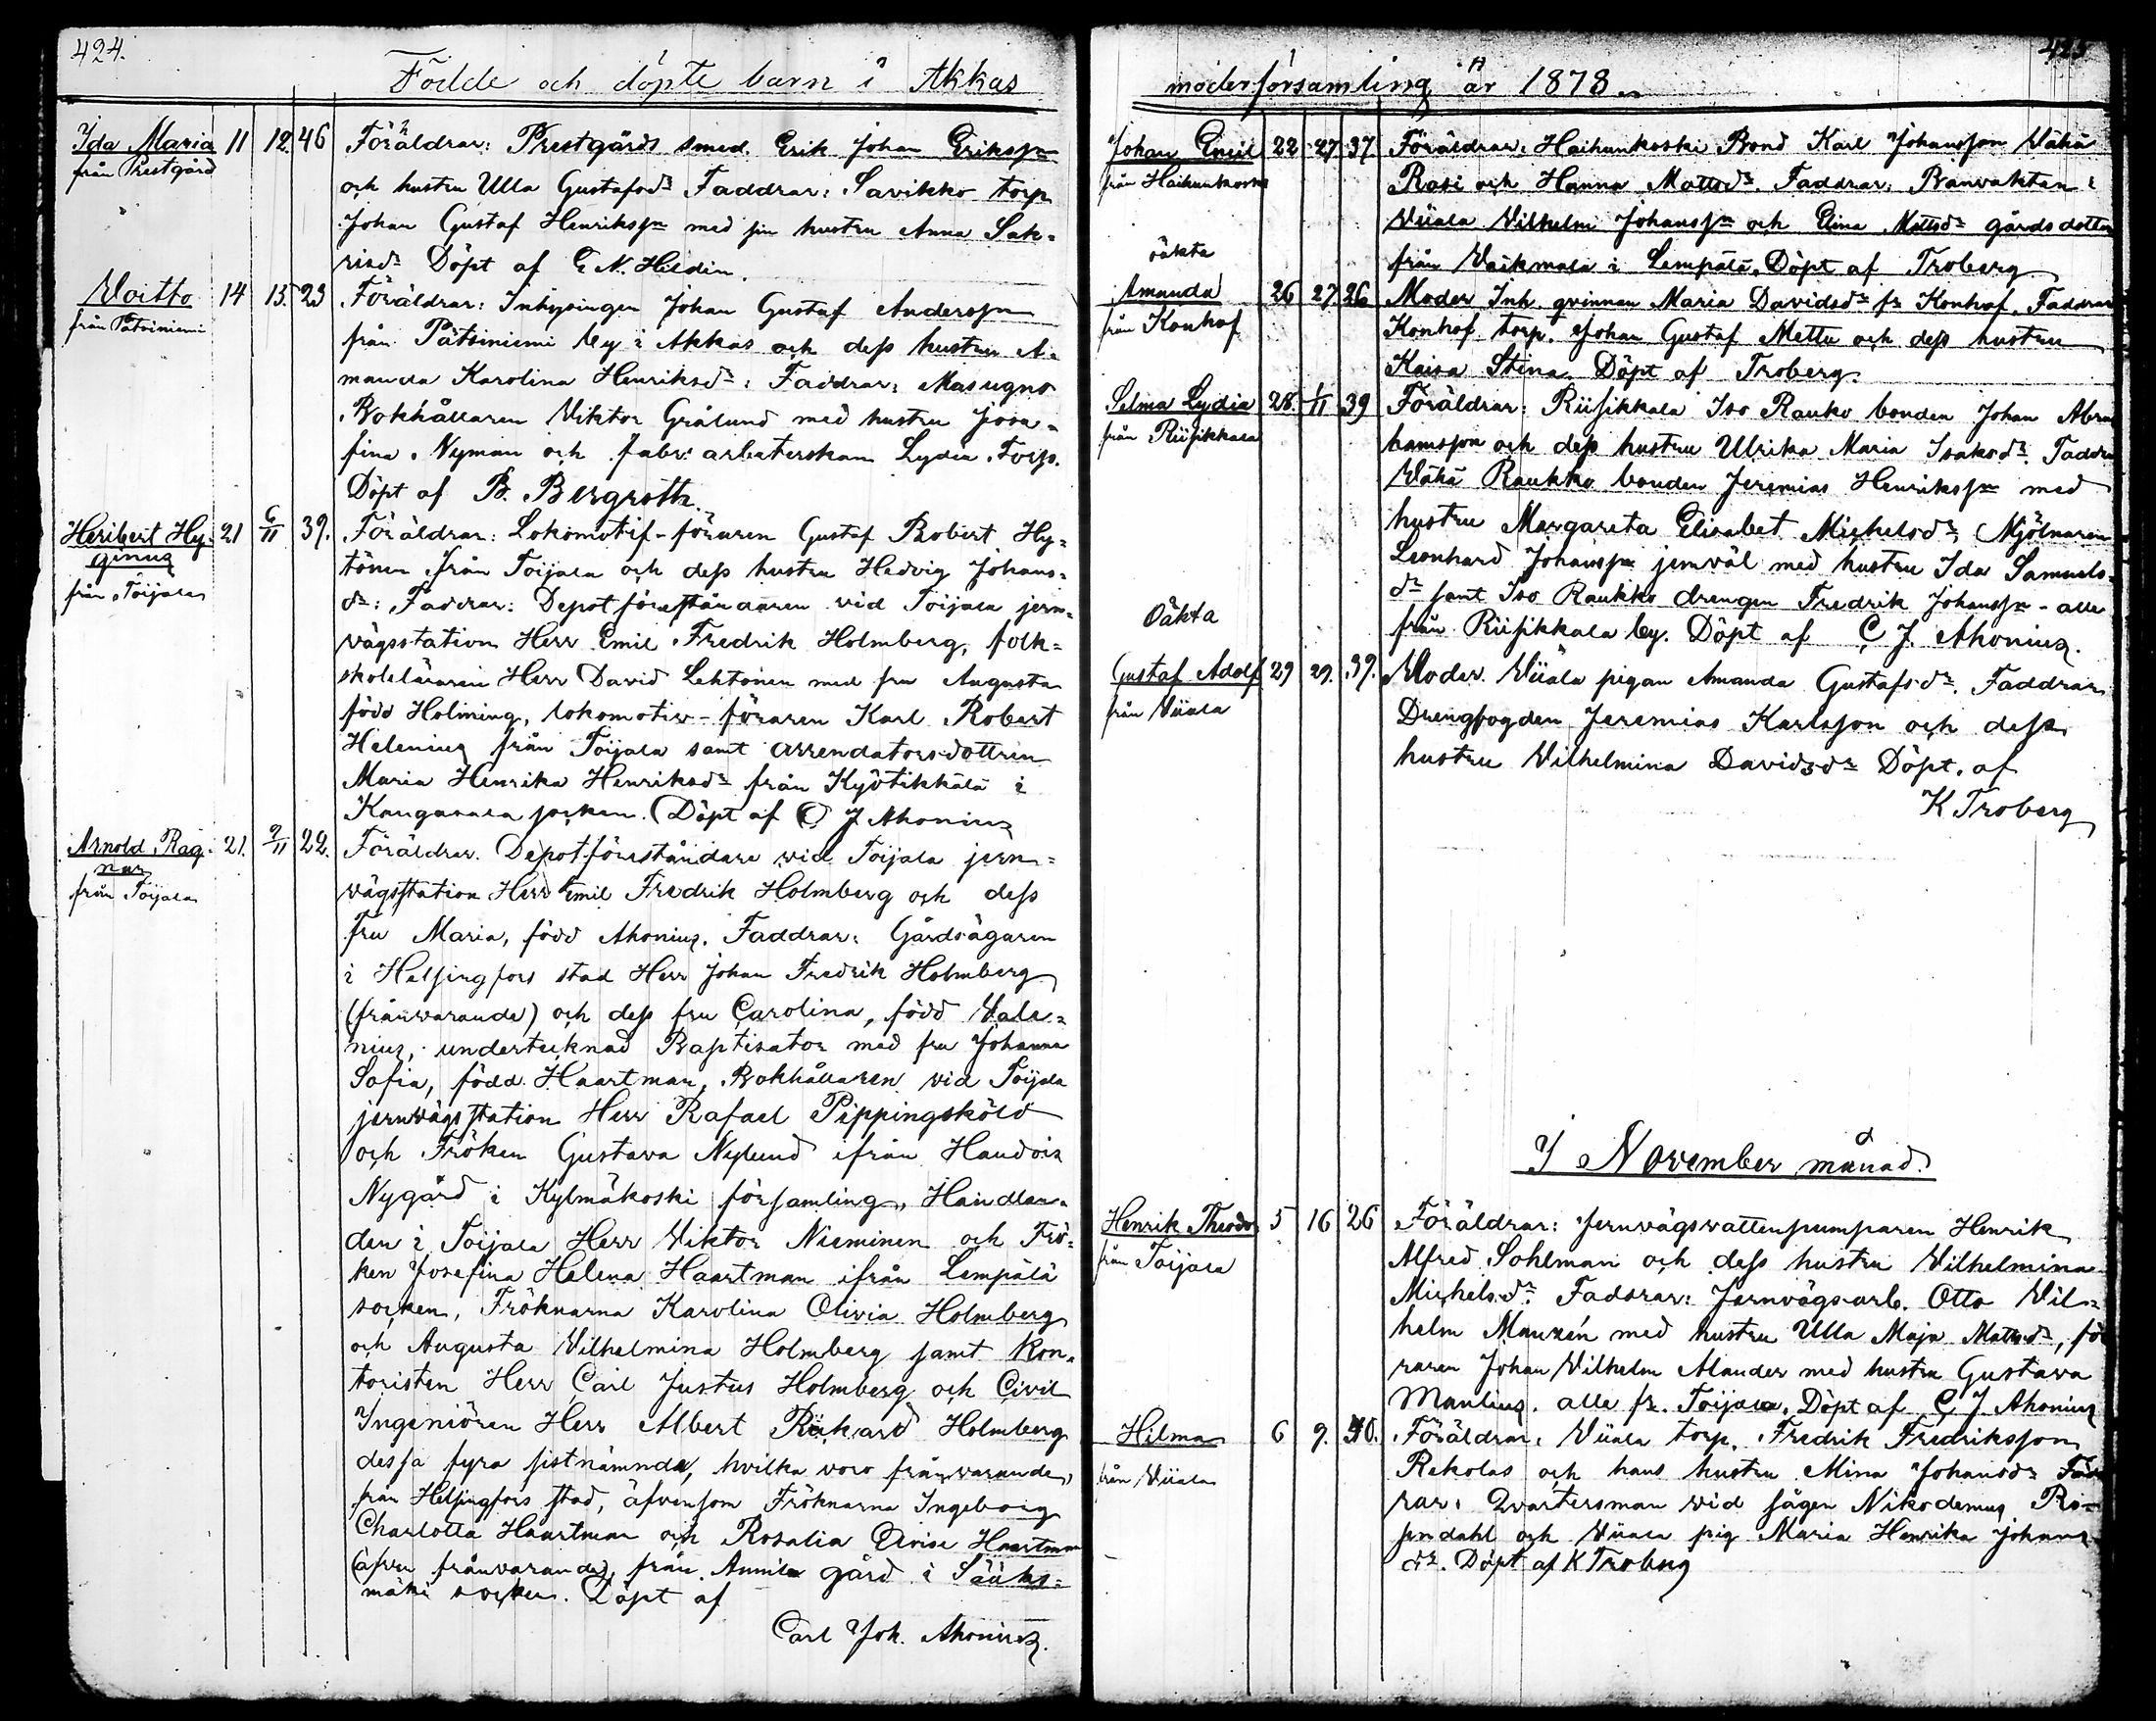 424.
Födde och döpte barn i Akkas
Ida Maria 11 12. 46 Föräldrar: Prestgårds smed. Erik Johan Eriksson
från Prestgård och hustru Ulla Gustafsdr Faddrar: Savikko torp
Johan Gustaf Henriksson med sin hustru Anna Sak=
risdr Döpt af G N. Hildin.
Voitto 14 15. 23 Föräldrar: Inhysingen Johan Gustaf Andersson
från Pätsiniemi från Pätsiniemi by i Akkas och dess hustru A=
manda Karolina Henriksdr: Faddrar: Masugns
Bokhållaren Viktor Grålund med hustru Jose=
fina Nyman och fabr: arbeterskan Lydia Forss.
Döpt af B. Bergroth.
Heribert Hy= 21 6/11 39. Föräldrar: Lokomotif-föraren Gustaf Robert Hy=
ginus tönen från Toijala och dess hustru Hedvig Johans=
från Toijala dr: Faddrar: Depotföreståndaren vid Toijala jern=
vägsstation Herr Emil Fredrik Holmberg, folk=
skoleläraren Herr David Lehtonen med fru Augusta
född Holming, lokomotiv-föraren Karl Robert
Helenius från Toijala samt arrendatorsdottren
Maria Henrika Henriksdr från Kyötikkälä i
Kangasala socken. Döpt af C J Ahonius
Arnold Rag= 21. 9/11 22. Föräldrar. Depotföreståndare vid Toijala jern=
nar vägsstation Herr Emil Fredrik Holmberg och dess
från Toijala fru Maria, född Ahonius. Faddrar: Gårdsägaren
i Helsingfors stad Herr Johan Fredrik Holmberg
(frånvarande) och dess fru Carolina, född Vale=
nius, undertecknad Baptisator med fru Johanna
Sofia, född Haartman, Bokhållaren vid Toijala
jernvägsstation Herr Rafael Pippingsköld
och Fröken Gustava Nylund ifrån Haudois
Nygård i Kylmäkoski församling, Handlan=
den i Toijala Herr Viktor Nieminen och Frö=
ken Josefina Helena Haartman ifrån Lempälä
socken, Fröknarna Karolina Olivia Holmberg
och Augusta Vilhelmina Holmberg samt Kon=
toristen Herr Carl Justus Holmberg och Civil
Ingeniören Herr Albert Rickard Holmberg
dessa fyra sistnämnda, hvilka voro frånvarande,
från Helsingfors stad, äfvensom Fröknarna Ingeborg
Charlotta Haartman och Rosalia Haartman
(äfven frånvarande), från Annila gård i Sääks=
mäki socken. Döpt af
Carl Joh. Ahonius.
425
moderförsamling år 1878.
Johan Emil 22 27 37 Föräldrar: Haihunkoski Bond Karl Johansson Vähä
från Haihunkoski Rasi och Hanna Mattsdr. Faddrar: Banvakten i
Viiala Vilhelm Johansson och Elina Mattsdr gårdsdotter
från Vaikmala i Lempälä. Döpt af Troberg
oäkta
Amanda 26 27. 26 Moder Inh. qvinnan Maria Davidsdr fr Konhof. Faddrar
från Konhof Konhof torp. Johan Gustaf Mettu och dess hustru
Kaisa Stina. Döpt af Troberg.
Selma Lydia 28. 1/11 39 Föräldrar: Riisikkala Iso Rauko bonden Johan Abra
från Riisikkala hamsson och dess hustru Ulrika Maria Isaksdr. Faddra
Vähä Raukko bonden Jeremias Henriksson med
hustru Margareta Elisabet Michelsdr, Mjölnaren
Leonhard Johansson jemväl med hustru Ida Samuels=
dr samt Iso Raukko drengen Fredrik Johansson - alla
från Riisikkala by. Döpt af C J. Ahonius.
Oäkta
Gustaf Adolf 29 29. 39. Moder. Viiala pigan Amanda Gustafsdr. Faddrar
från Viiala Drengfogden Jeremias Karlsson och dess
hustru Vilhelmina Davidsdr Döpt. af
K Troberg
I November månad.
Henrik Theodor 5 16 26 Föräldrar: Jernvägsvattenpumparen Henrik
från Toijala Alfred Sohlman och dess hustru Vilhelmina
Michelsdr. Faddrar: Jernvägsarb. Otto Vil=
helm Mauzén med hustru Ulla Maja Mattsdr, fö
raren Johan Vilhelm Alander med hustru Gustava
Manlius. alla fr. Toijala. Döpt af C J. Ahonius
Hilma 6 9. 40. Föräldrar: Viiala torp. Fredrik Fredriksson
från Viiala Rekolas och hans hustru Mina Johansdr Fadd
rar: Qvartersman vid sågen Nikodemus Ro=
sendahl och Viiala pig Maria Henrika Johans
dr. Döpt af K Troberg